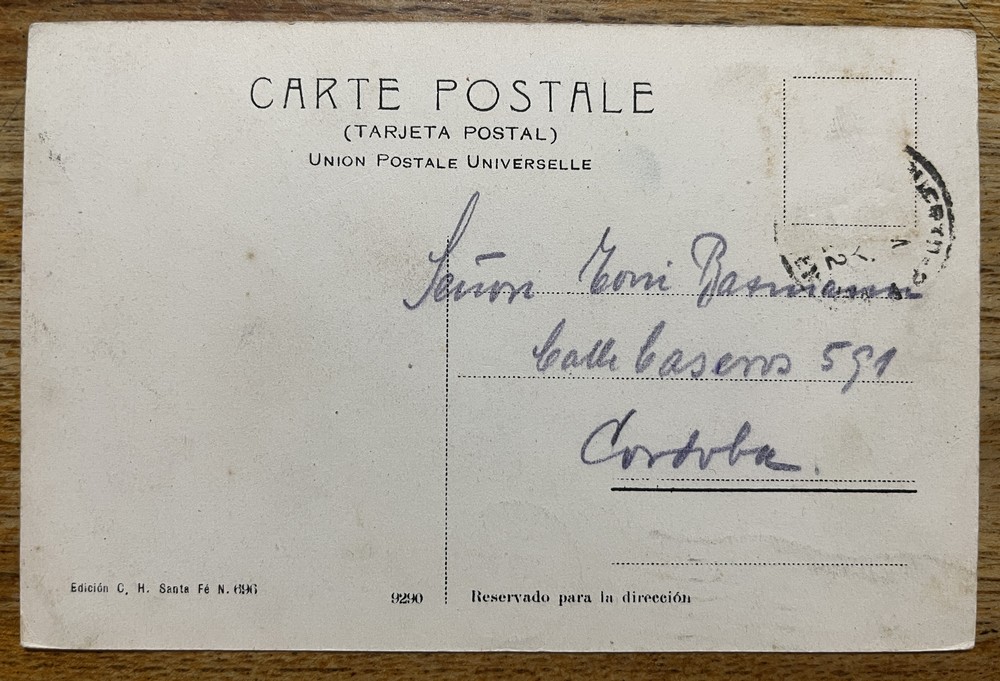 CARTE POSTALE
(TARJETA POSTAL)
UNION POSTALE UNIVERSELLE
Señor Toni Basmann
Calle Caseros 591
Cordoba.
Edición C. H. Santa Fé N. 696
9290
Reservado para la dirección